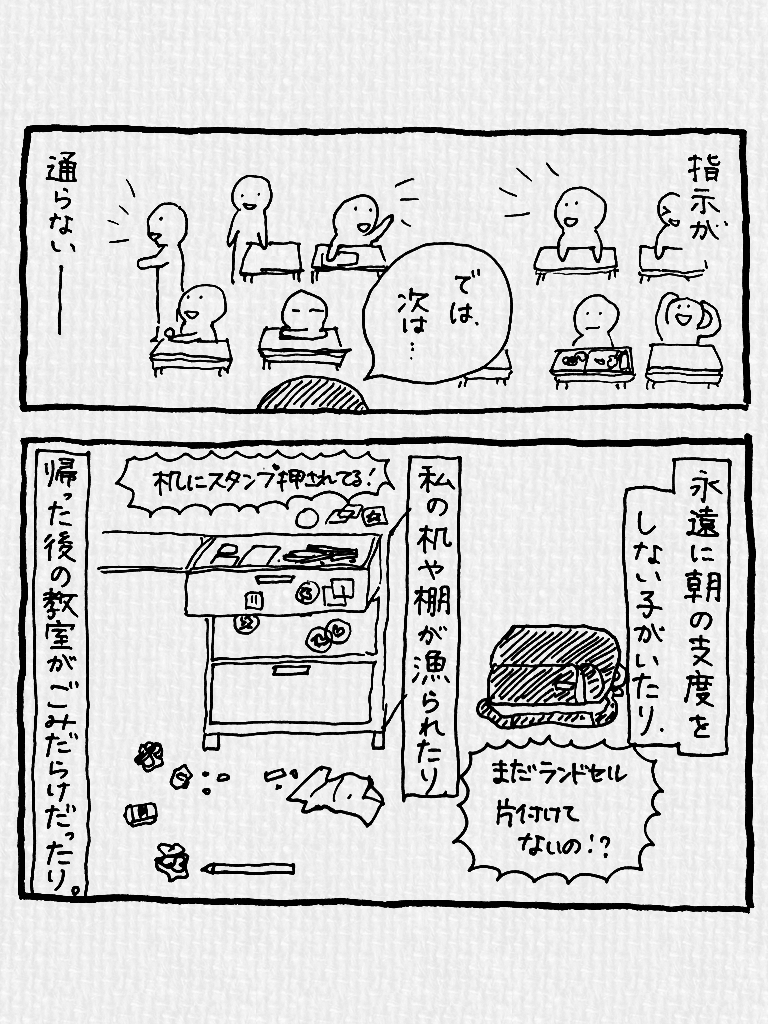 指示が
では、
次は…
通らない――
永遠に朝の支度を
しない子がいたり、
まだランドセル
片付けて
ないの!?
私の机や棚が漁られたり
机にスタンプ押されてる!
帰った後の教室がごみだらけだったり。